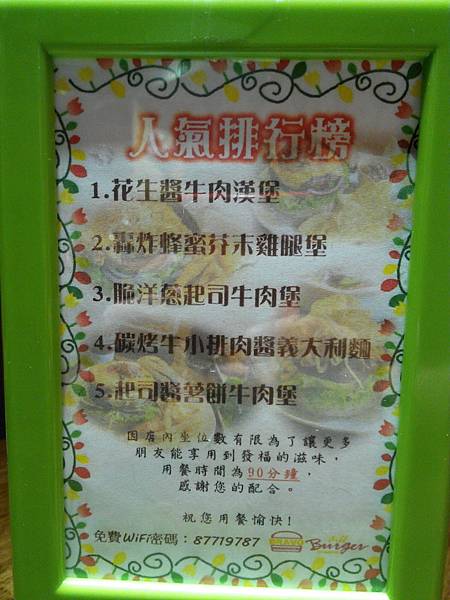 人氣排行榜
1.花生醬牛肉漢堡
2.轟炸蜂蜜芥末雞腿堡
3.脆洋蔥起司牛肉堡
4.碳烤牛小排肉醬義大利麵
5.起司醬薯餅牛肉堡
因店內坐位數有限為了讓更多
朋友能享用到發福的滋味，
用餐時間為90分鐘，
感謝您的配合。
祝您用餐愉快！
免費WiFi密碼：87719787
Burger